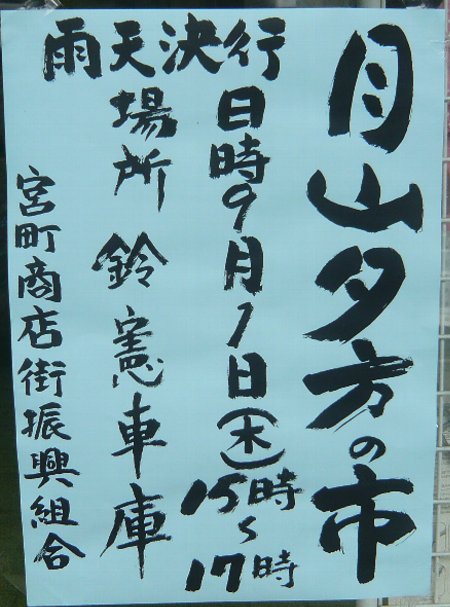 月山夕方の市
雨天決行
日時9月1日(木)
15時~17時
場所 鈴憲車庫
宮町商店街振興組合